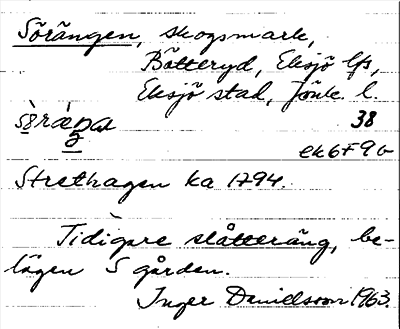 Sörängen, skogsmark,
Bötteryd, Eksjö lfs,
Eksjö stad, Jönk. l.
38
ek6F9b
Strethagen ka 1794.
Tidigare slåtteräng, be-
lägen S gården.
Inger Danielsson 1963.